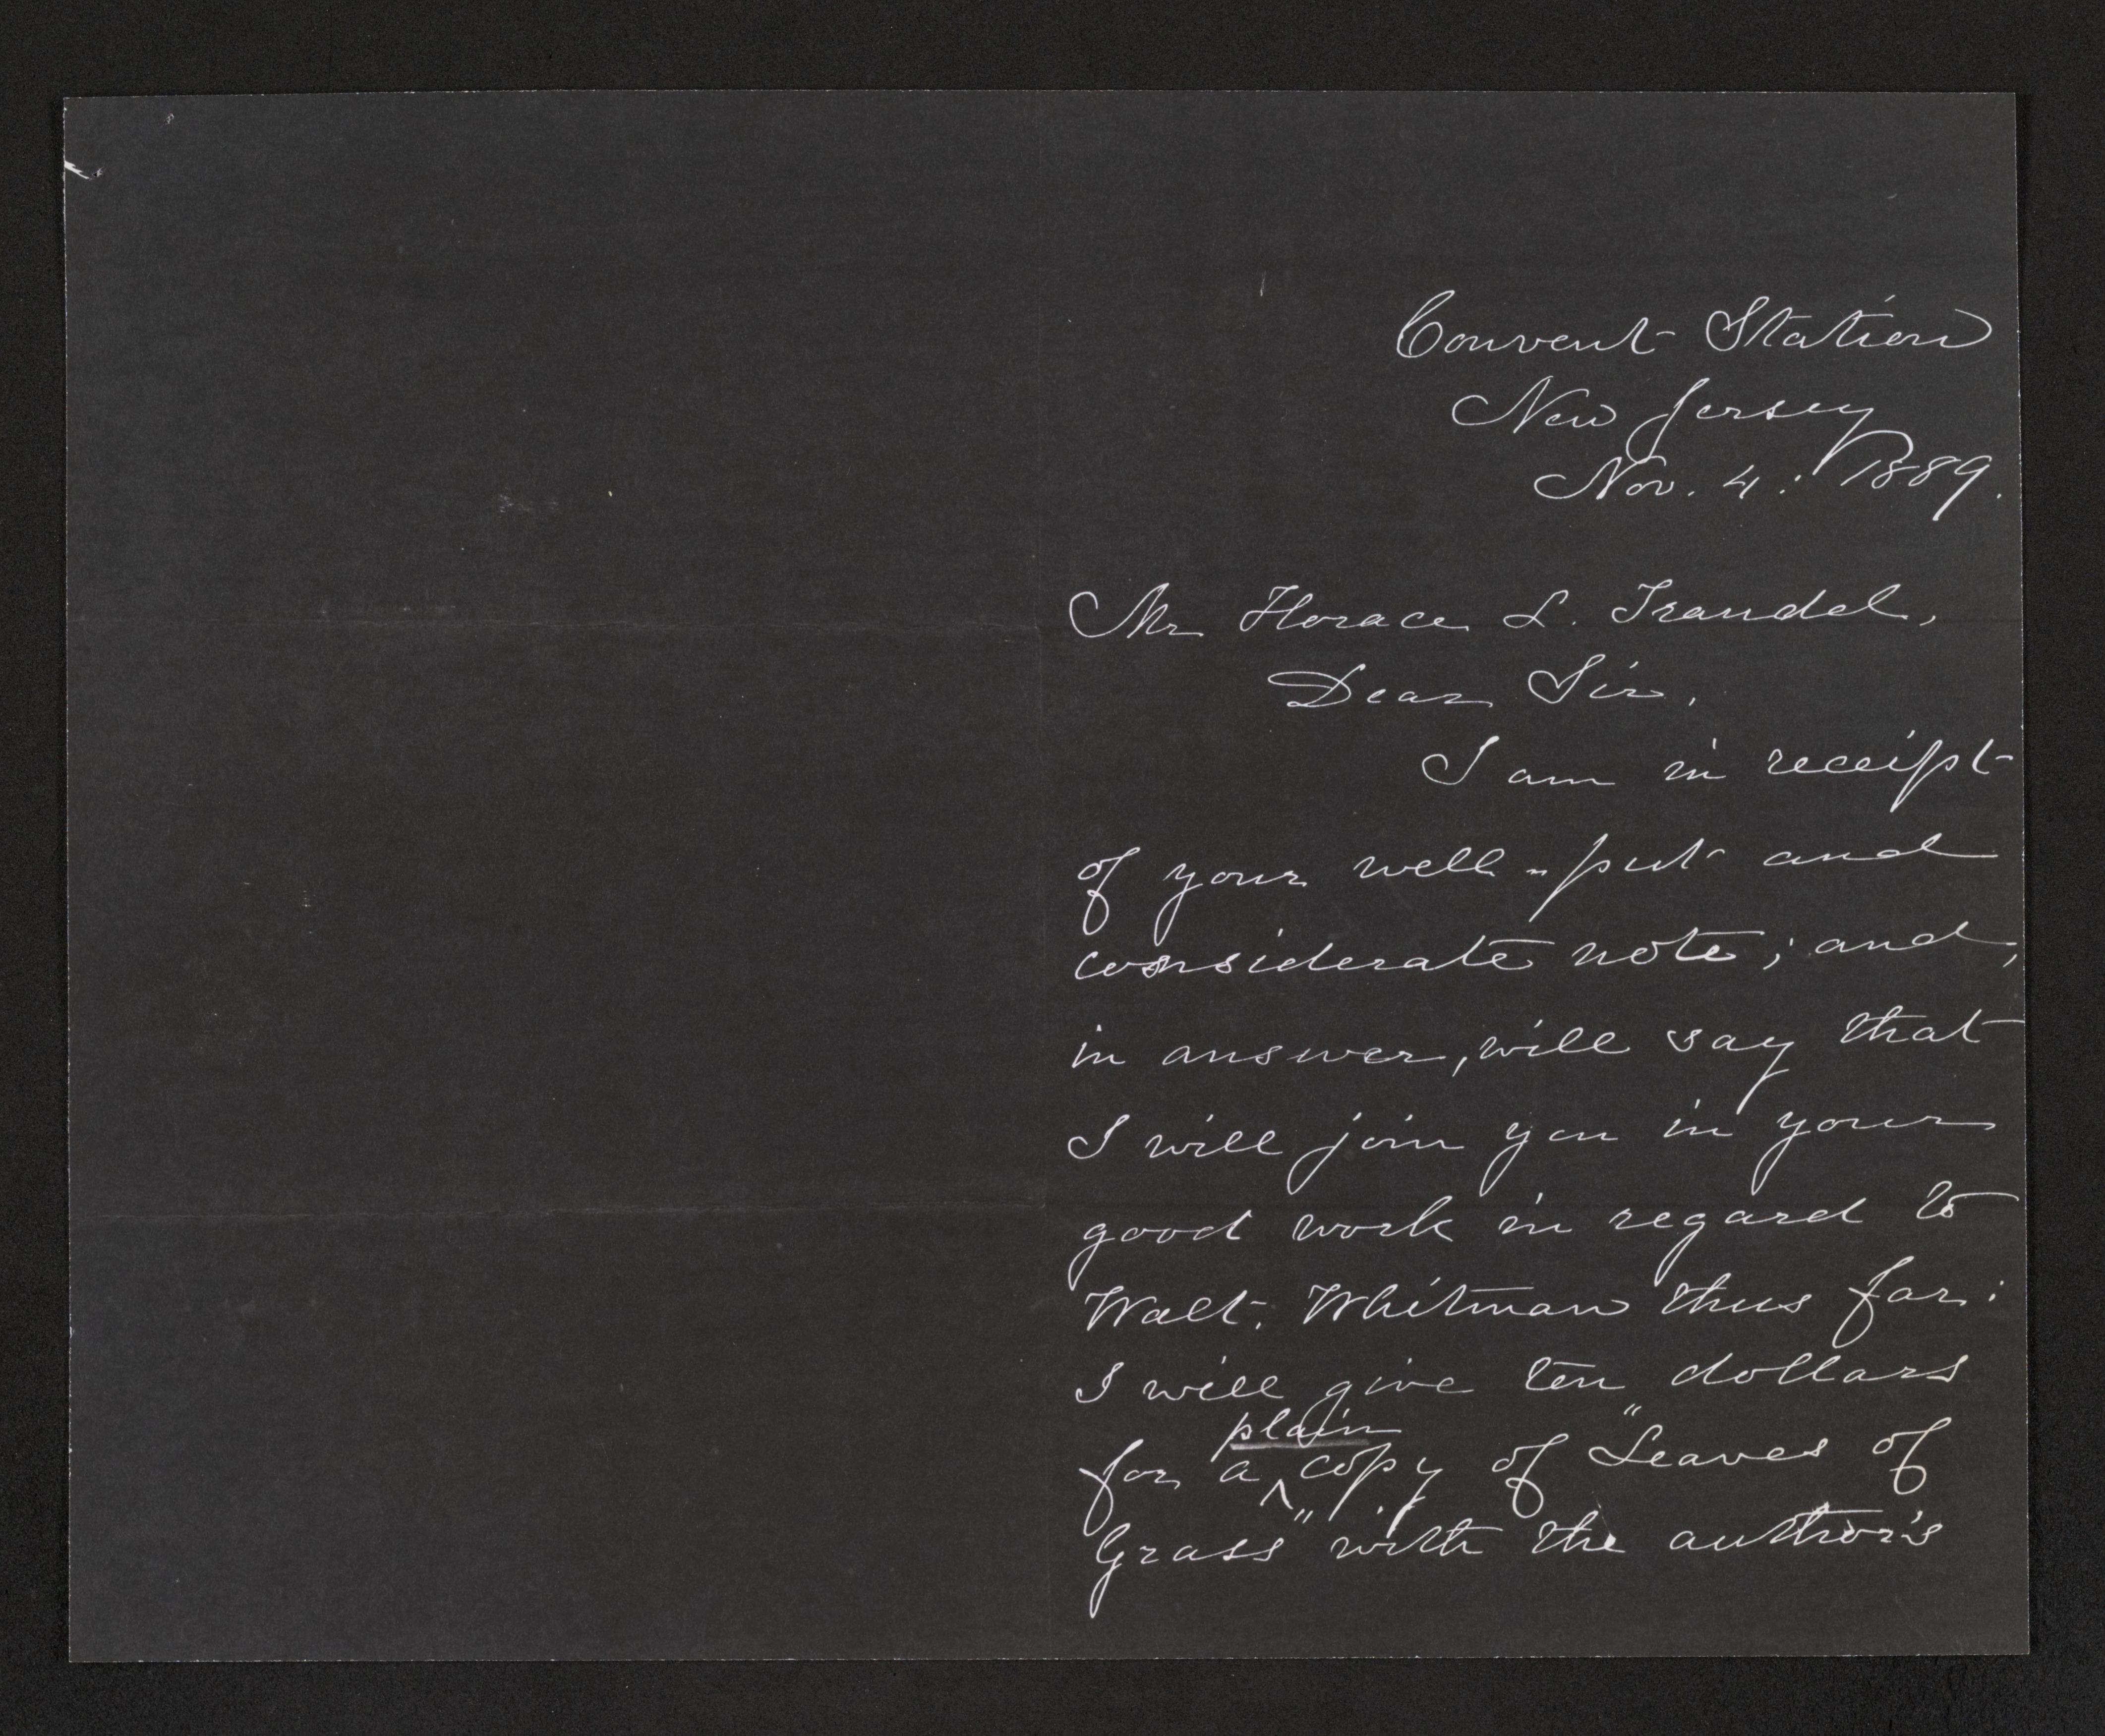 Convent Station
New Jersey
Nov. 4. 1889.
Mr Horace L. Traudel,
Dear Sir,
I am in receipt
of your well-put and
considerate note; and,
in answer, will say that
I will join you in your
good work in regard to
Walt. Whitman thus far:
I will give ten dollars
plain
for a ^ copy of "Leaves of
Grass" with the author's